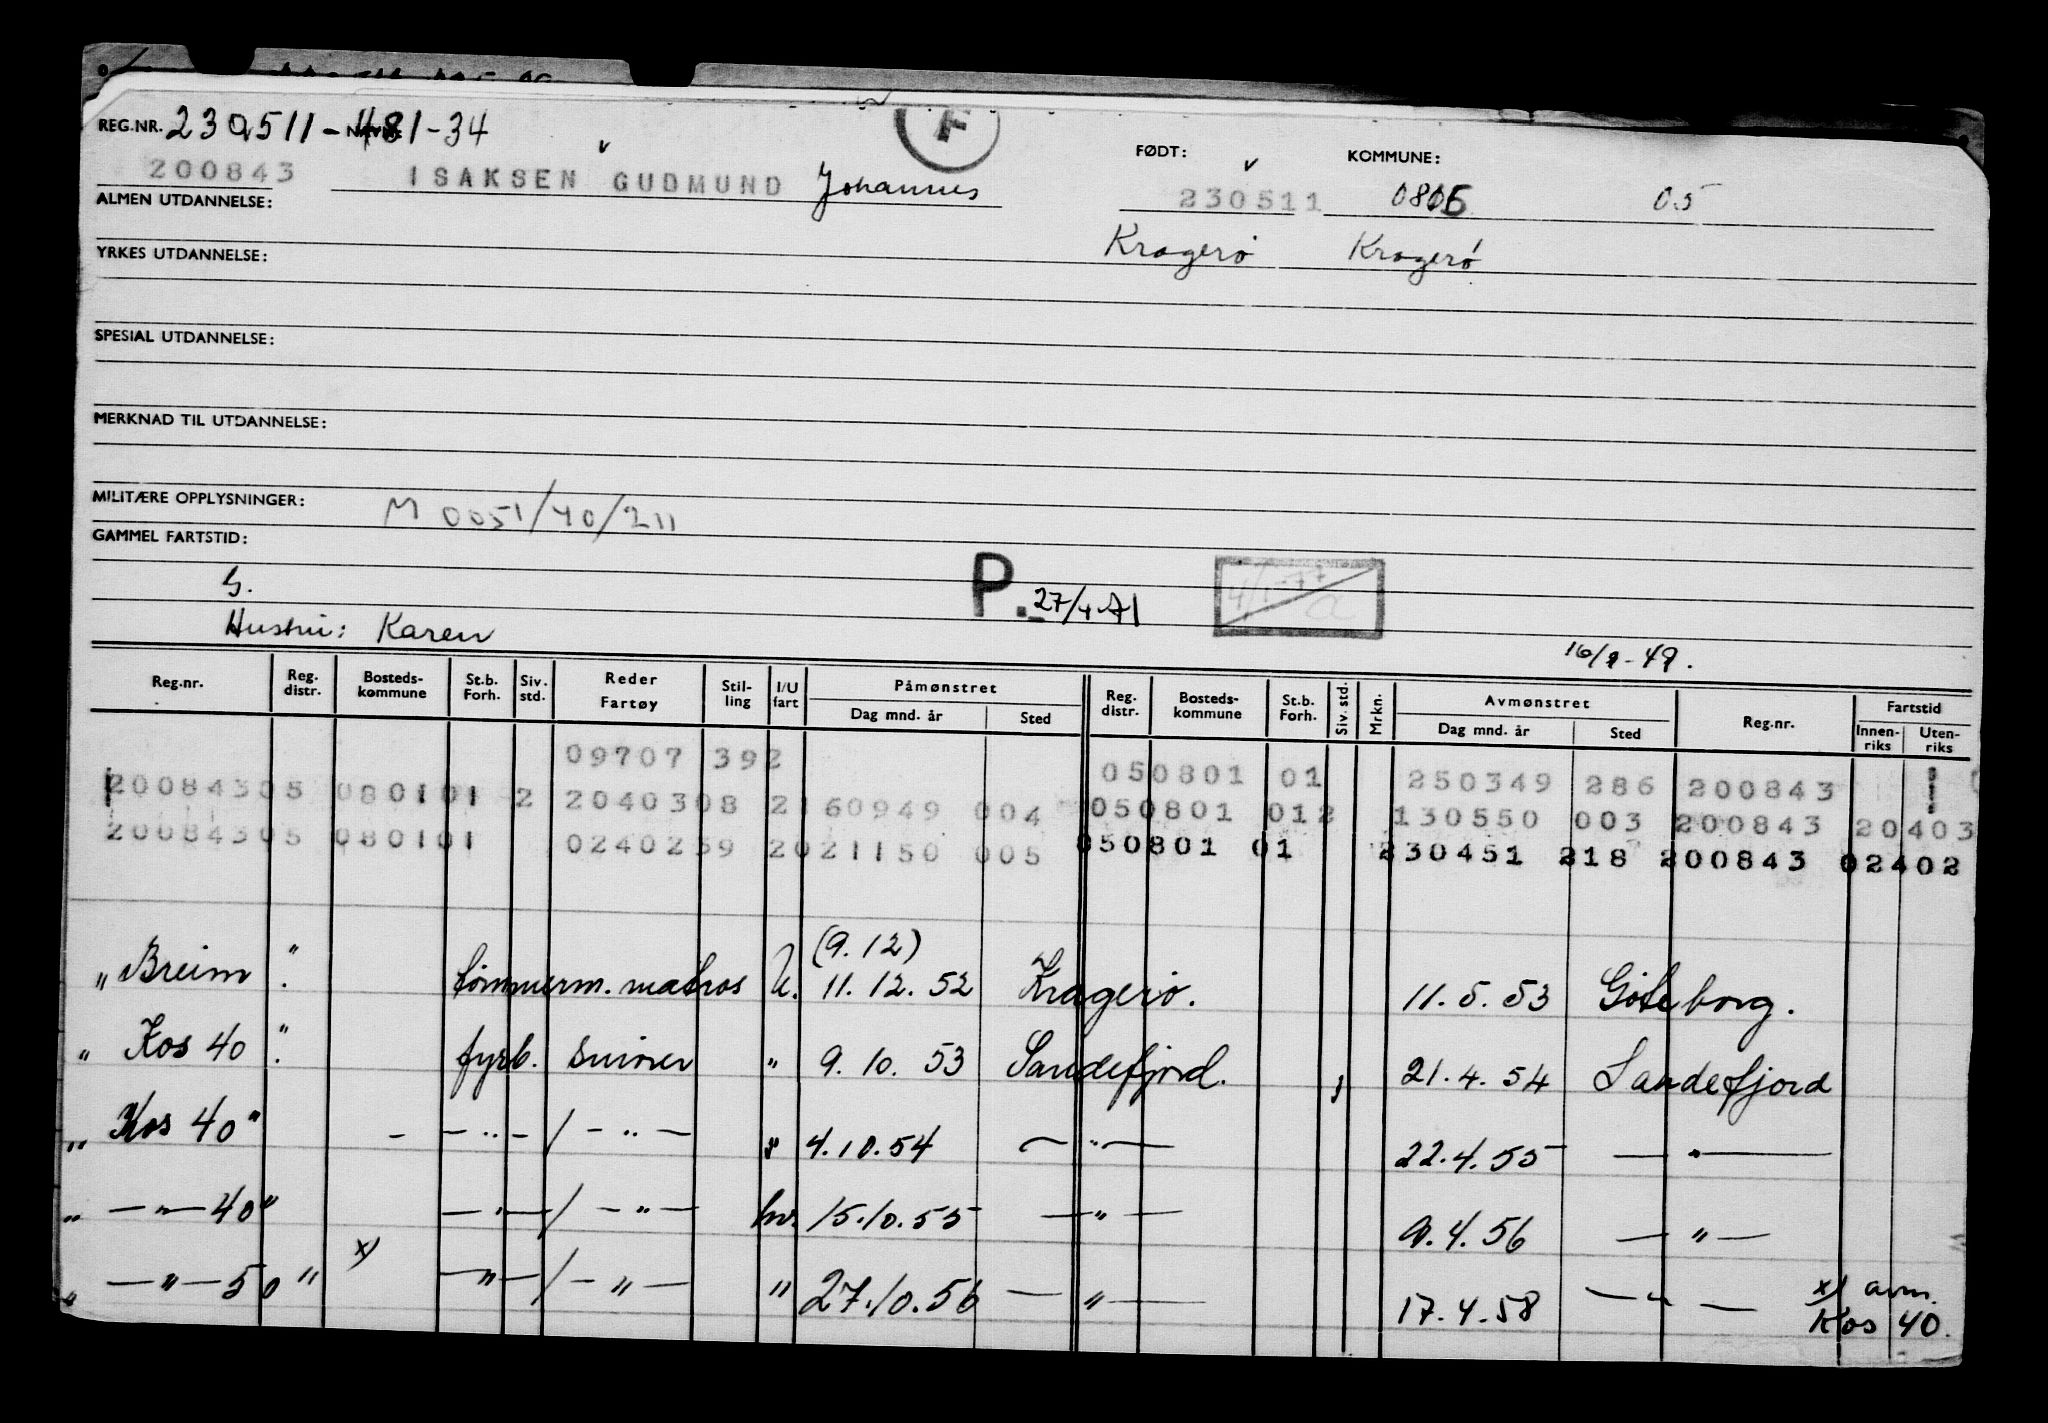 REG.NR. 230511-481-34
F
FØDT: KOMMUNE:
200843 ISAKSEN GUDMUND Johannes 230511 0805 05
ALMEN UTDANNELSE:
Kragerø Kragerø
YRKES UTDANNELSE:
SPESIAL UTDANNELSE:
MERKNAD TIL UTDANNELSE:
MILITÆRE OPPLYSNINGER: M 0051/40/211
GAMMEL FARTSTID:
P. 27/4-71 4/1-77
Hustru: Karen
16/9-49.
Reg.nr. Reg. distr. Bosteds-kommune St.b. Forh. Siv. std. Reder Fartøy Stil-ling I/U fart Påmønstret Dag mnd. år Sted Reg. distr. Bosteds-kommune St.b. Forh. Siv. std. Mrkn. Avmønstret Dag mnd. år Sted Reg.nr. Fartstid Innen-riks Uten-riks
09707 392 050801 01 250349 286 200843
20084305 080101 2 2040308 2160949 004 050801 012 130550 003 200843 20403
20084305 080101 0240259 2021150 005 050801 01 230451 218 200843 02402
(9.12)
" Breim " tømmerm. matros U. 11.12.52 Kragerø. 11.5.53 Göteborg.
" Kos 40 " fyrb. smører " 9.10.53 Sandefjord. 21.4.54 Sandefjord
" Kos 40 " - - " - / - " - 4.10.54 - " - 22.4.55 - " -
" - " - 40 " - " - / - " - hv. 15.10.55 - " - 9.4.56 - " -
" - " - 50 " x) - " - / - " - " 27.10.56 - " - 17.4.58 - " - x) avm.
Kos 40.